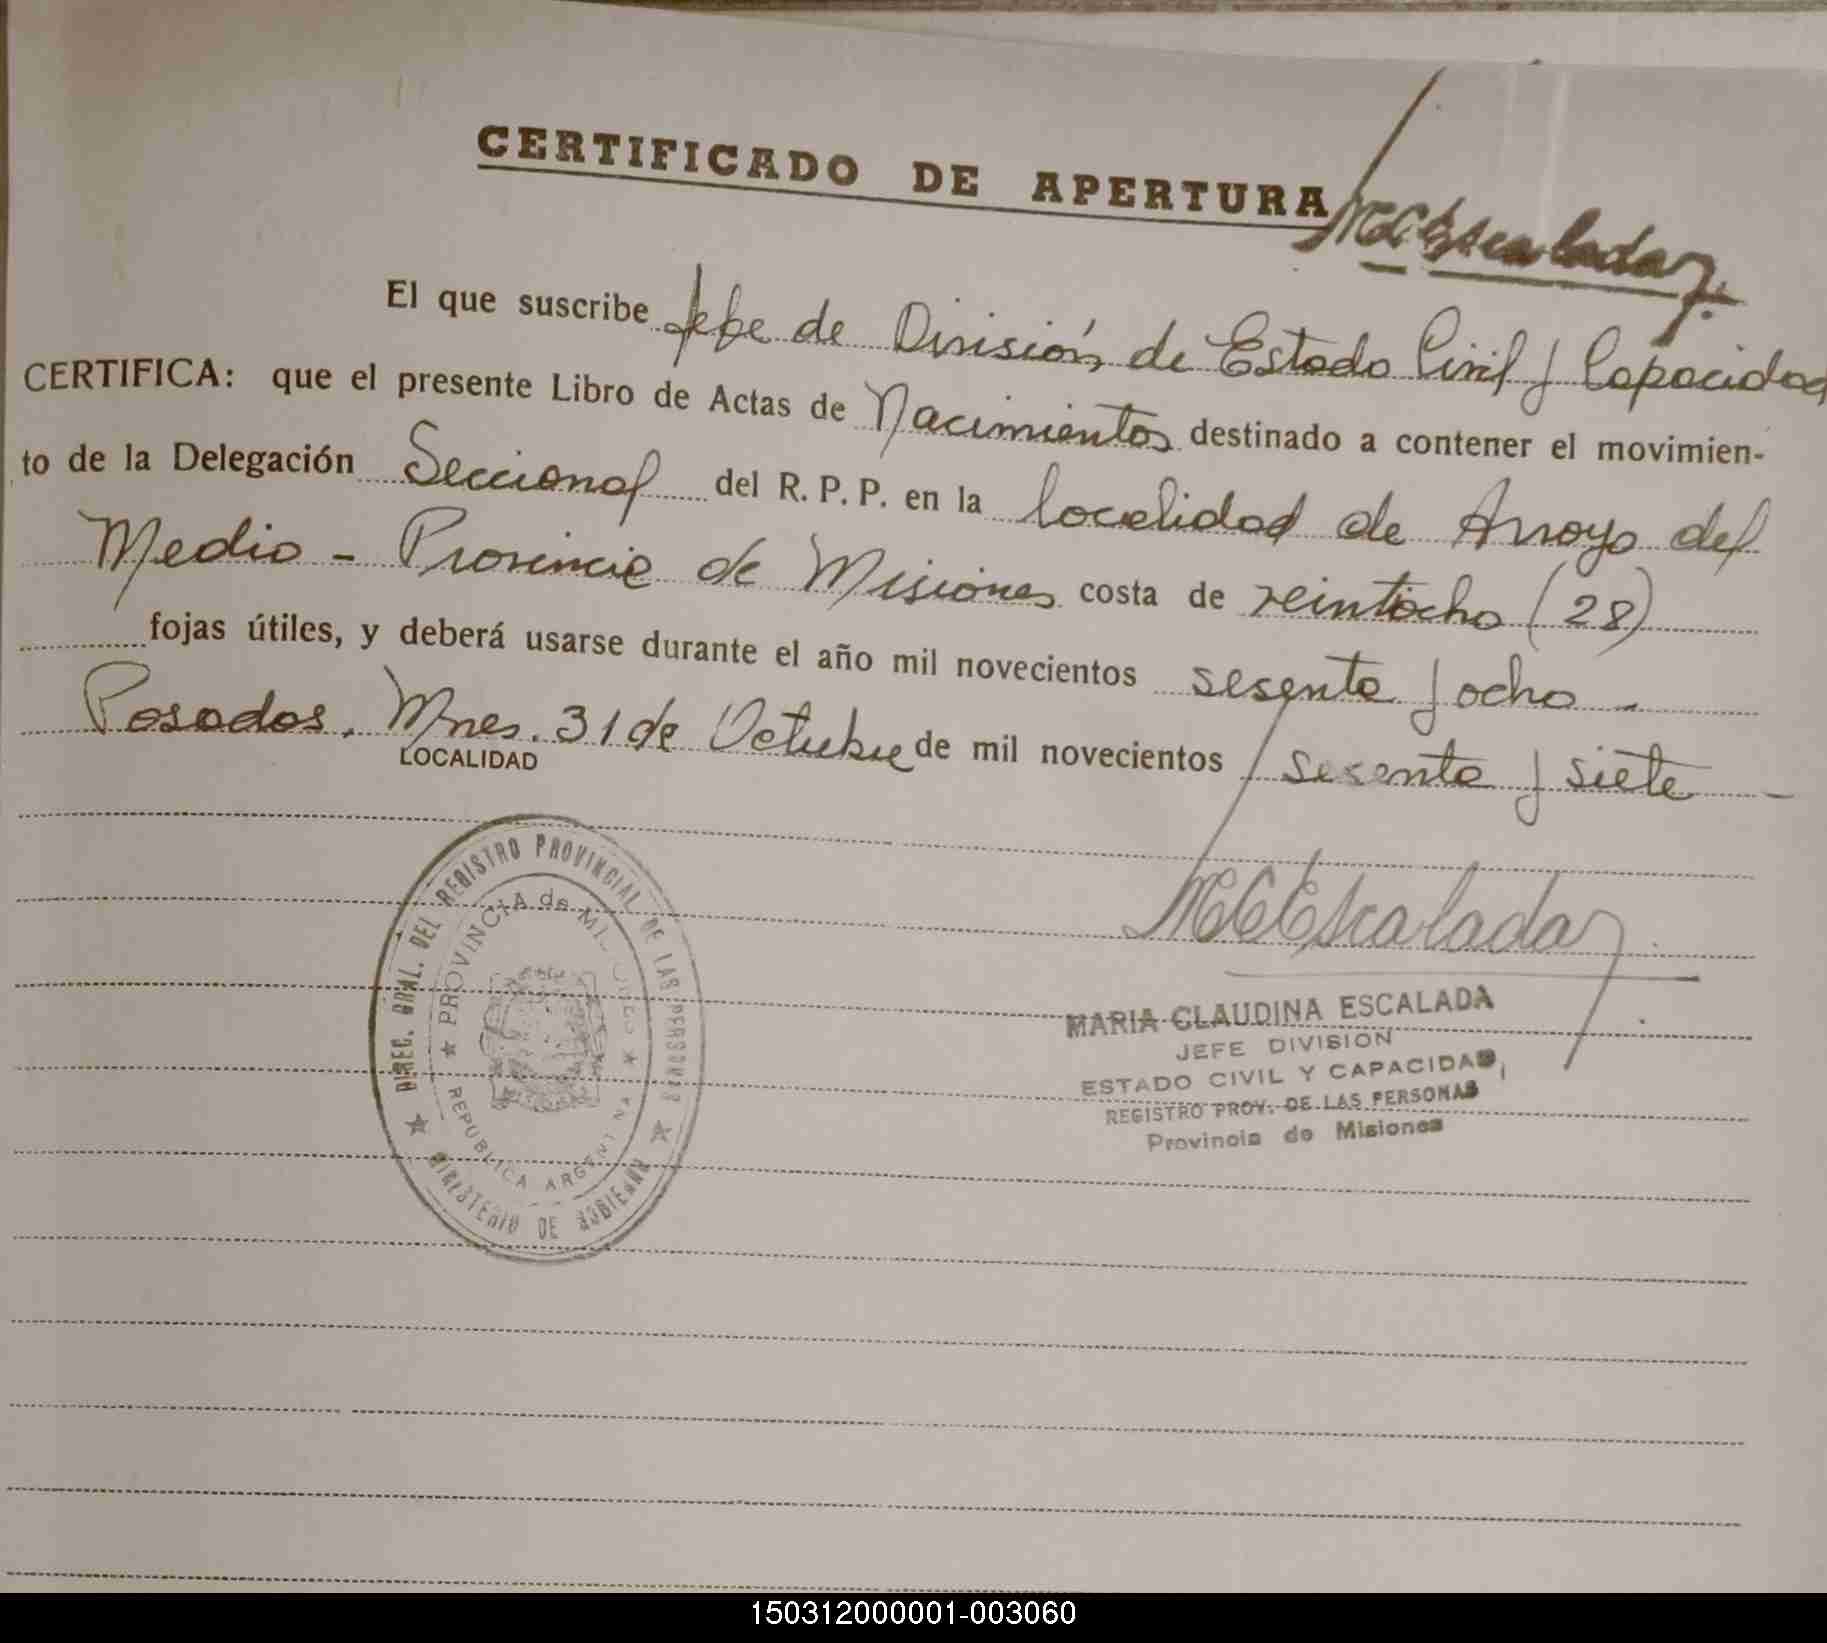 CERTIFICADO DE APERTURA
MCEscalada
El que suscribe Jefe de División de Estado Civil y Capacidad
CERTIFICA: que el presente Libro de Actas de Nacimientos destinado a contener el movimien-
to de la Delegación Seccional del R. P. P. en la localidad de Arroyo del
Medio - Provincia de Misiones costa de veintiocho (28)
fojas útiles, y deberá usarse durante el año mil novecientos sesenta y ocho -
Posadas, Mnes. 31 de Octubre de mil novecientos sesenta y siete -
LOCALIDAD
DIREC. GRAL. DEL REGISTRO PROVINCIAL DE LAS PERSONAS
★ MINISTERIO DE GOBIERNO ★
★ PROVINCIA de MISIONES ★
REPUBLICA ARGENTINA
MCEscalada
MARIA CLAUDINA ESCALADA
JEFE DIVISION
ESTADO CIVIL Y CAPACIDAD
REGISTRO PROV. DE LAS PERSONAS
Provincia de Misiones
150312000001-003060